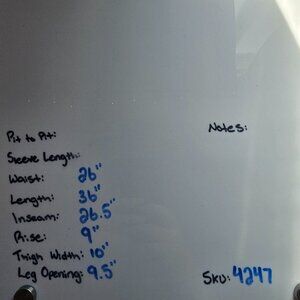 Pit to Pit:
Notes:
Sleeve Length:
Waist: 26"
Length: 36"
Inseam: 26.5"
Rise: 9"
Thigh Width: 10"
Leg Opening: 9.5"
SKU: 4247